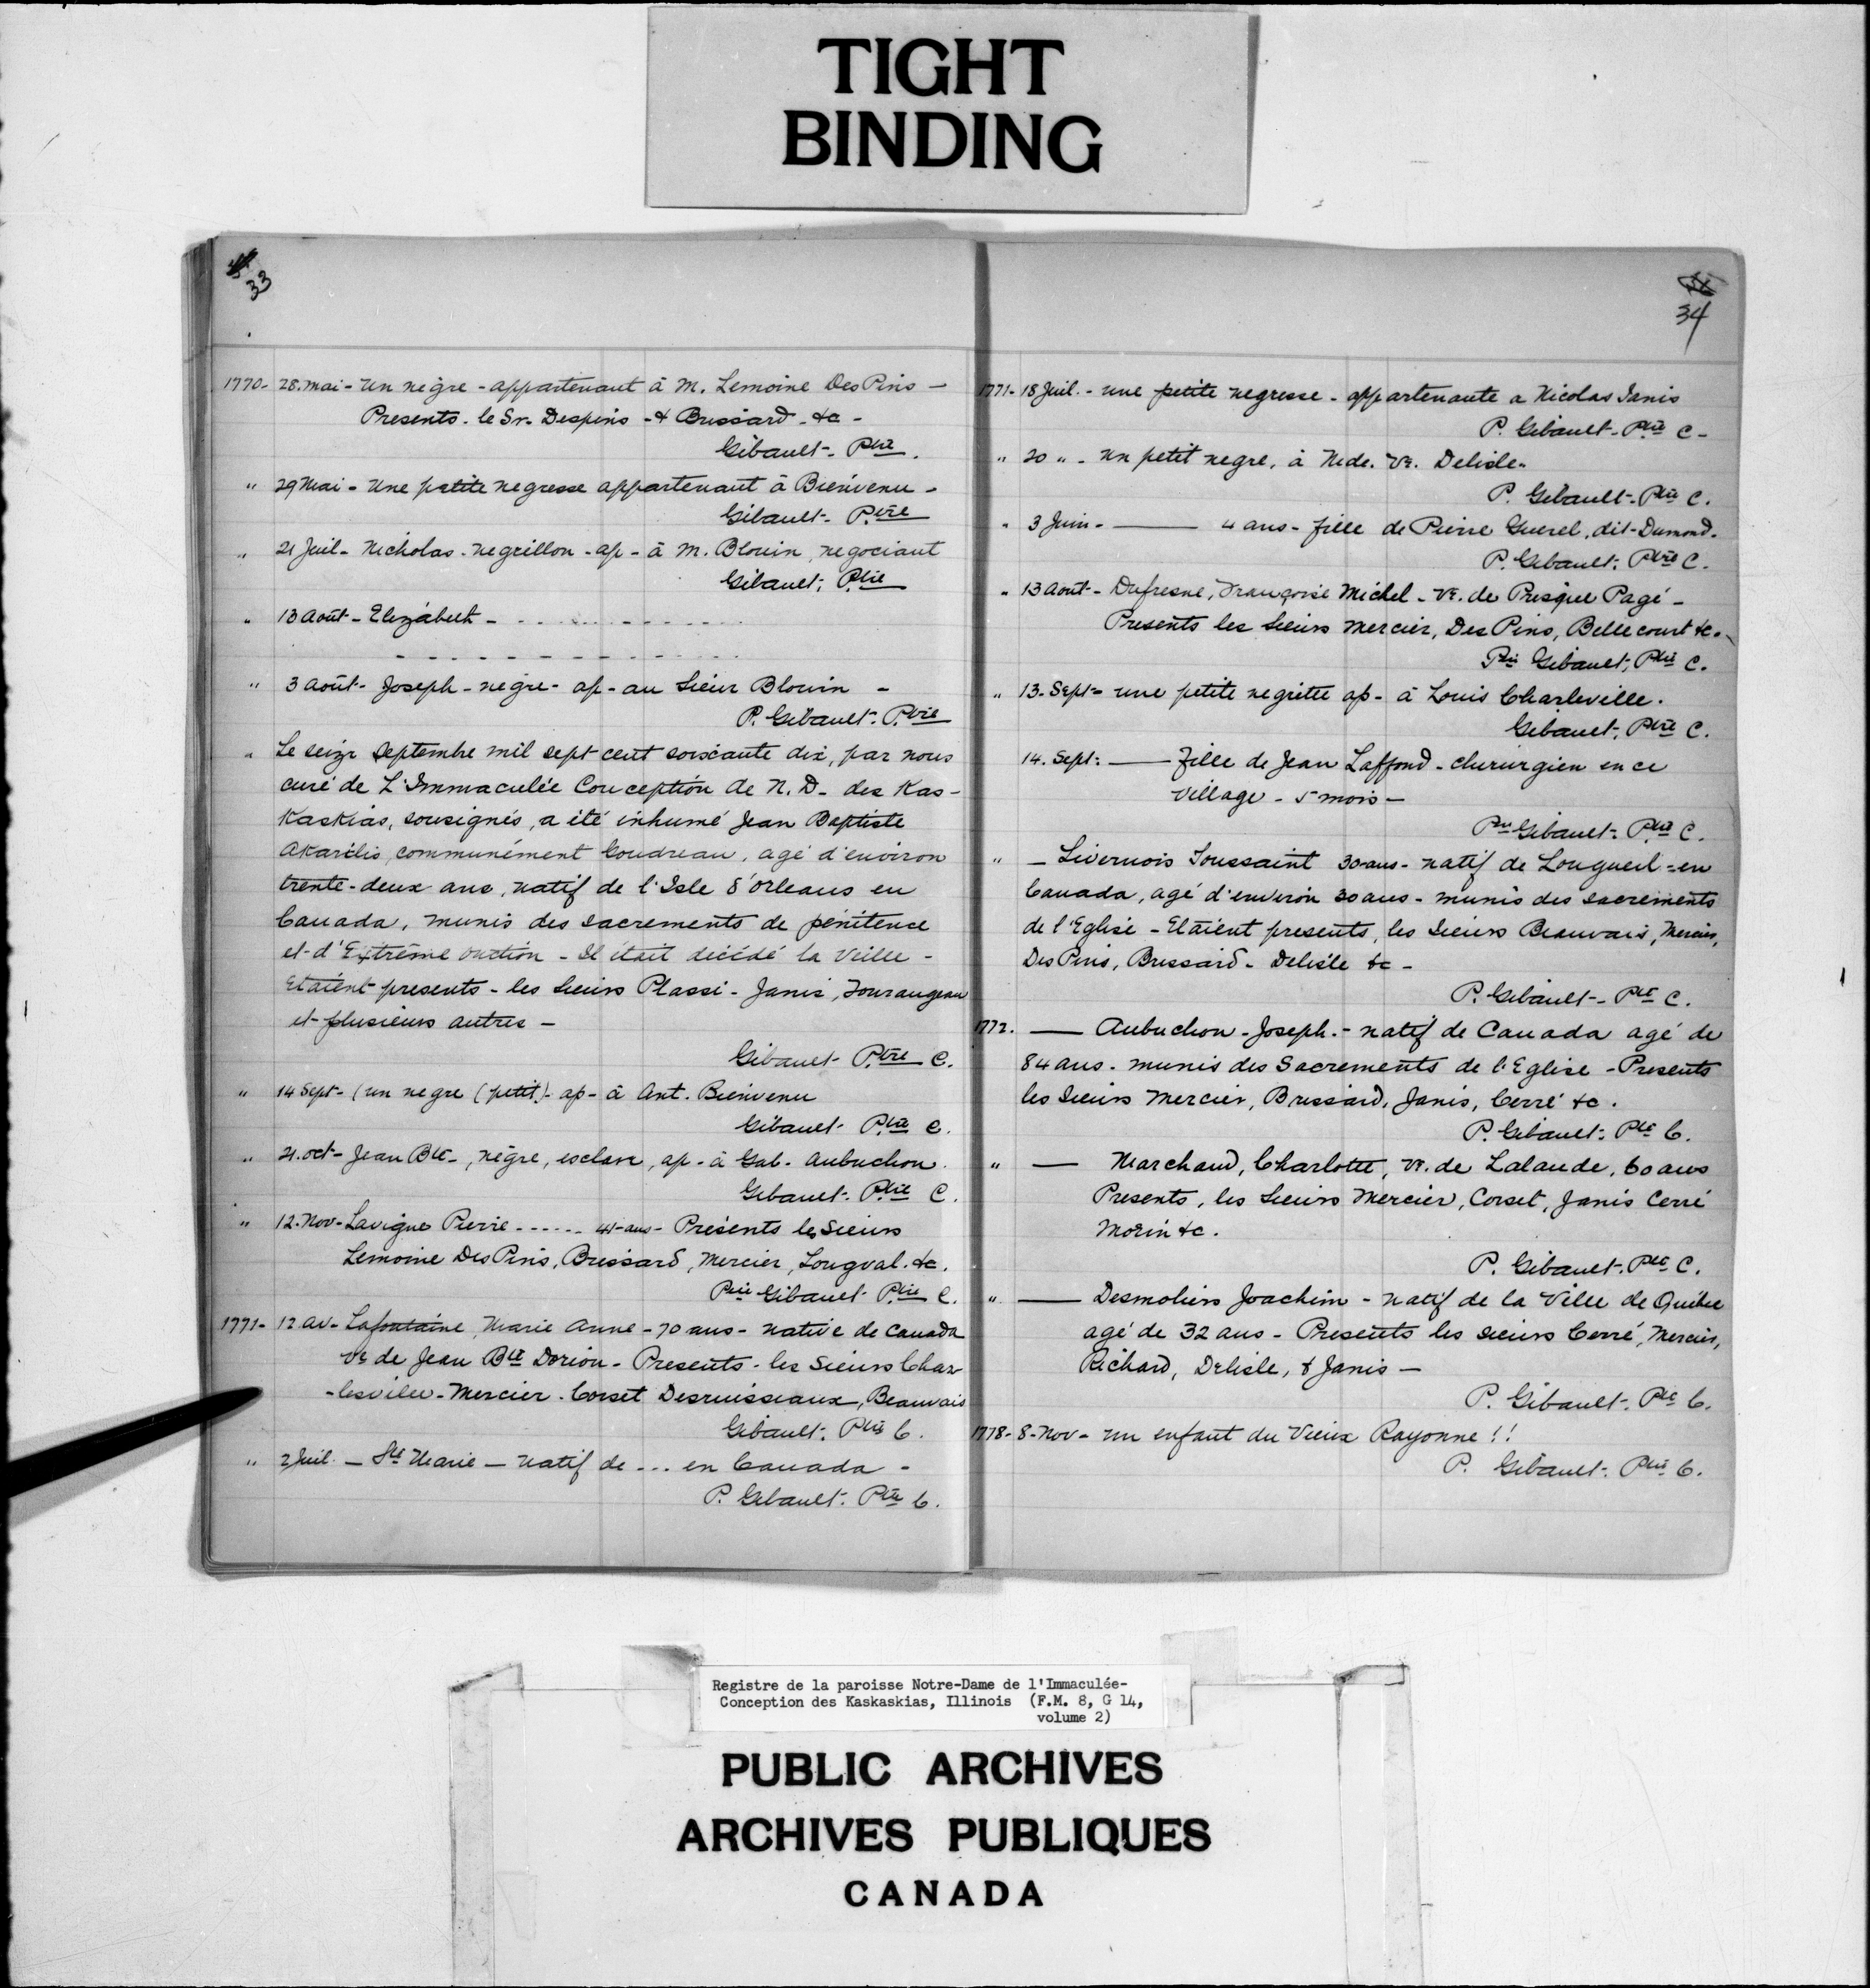 TIGHT
BINDING
33
1770- 28. mai - un negre - appartenant à M. Lemoine Des Pins -
Presents - le Sr. Despins - & Brissard - &c -
Gibault - Ptre.
" 29 Mai - Une petite negresse appartenant à Bienvenu -
Gibault - Ptre
" 21 Juil - Nicholas - negrillon - ap - à M. Blouin, negociant
Gibault, Ptre
" 13 août - Elizabeth - - - - - - - - - -
- - - - - - - - - - - -
" 3 août - Joseph - negre - ap - au Sieur Blouin -
P. Gibault - Ptre
" Le seize Septembre mil sept cent soixante dix, par nous
curé de L'Immaculée Conception de N. D. des Kas-
Kaskias, sousignés, a été inhumé Jean Baptiste
communément Goudreau, agé d'environ
trente-deux ans, natif de l'Isle d'Orleans en
Canada, munis des sacrements de pénitence
et d'Extrême onction - Il était décédé la veille -
Etaient presents - les Sieurs Plassi - Janis, Tourangeau
et plusieurs autres -
Gibault - Ptre C.
" 14 Sept - (un negre (petit) - ap - à Ant. Bienvenu
Gibault - Ptre C.
" 21. oct - Jean Bte -, nègre, esclave, ap - à Gab - Aubuchon.
Gibault - Ptre C.
" 12. Nov - Lavigne Pierre - - - - - - 41-ans - Présents les Sieurs
Lemoine Des Pins, Brissard, Mercier, Longval. &c.
Prre Gibault - Ptre C.
1771- 12 av - Lafontaine, Marie Anne - 70 ans - native de Canada
ve de Jean Bte Dorion - Presents - les Sieurs Char-
-lesville - Mercier - Corset Desruisseaux, Beauvais
Gibault, Ptre C.
" 2 Juil. - Ste Marie - natif de - - - en Canada -
P. Gibault - Ptre C.
34
1771- 18 Juil. - une petite negresse - appartenante a Nicolas Janis
P. Gibault - Ptre C -
" 20 " - un petit negre, à Ve. Delisle -
P. Gibault - Ptre C.
" 3 Juin - —— 4 ans - fille de Pierre Guerel, dit - Dumond.
P. Gibault, Ptre C.
" 13 août - Dufresne, Françoise Michel - Ve. de Prisque Pagé -
Presents les Sieurs Mercier, Des Pins, Bellecourt &c.
Prre Gibault, Ptre C.
" 13 - Sept - une petite negritte ap - à Louis Charleville.
Gibault, Ptre C.
14. Sept: —— Fille de Jean Laffond - chirurgien en ce
village - 5 mois -
Prre Gibault - Ptre C.
" - Livernois Toussaint 30 ans - natif de Longueil - en
Canada, agé d'environ 30 ans - munis des sacrements
de l'Eglise - Etaient presents, les Sieurs Beauvais, Mercier,
Des Pins, Brissard - Delisle &c -
P. Gibault - Ptre C.
1772. —— Aubuchon - Joseph. - natif de Canada agé de
84 ans. munis des Sacrements de l'Eglise - Presents
les Sieurs Mercier, Brissard, Janis, Cerré &c.
P. Gibault, Ptre C.
" —— Marchand, Charlotte, ve. de Lalande, 60 ans
Presents, les Sieurs Mercier, Corset, Janis Cerré
Morin &c.
P. Gibault - Ptre C.
" —— Desmoliers Joachim - natif de la Ville de Québec
agé de 32 ans - Presents les sieurs Cerré, Mercier,
Richard, Delisle, & Janis -
P. Gibault, Ptre C.
1778 - 8 - Nov - un enfant du Vieux Rayonne !!
P. Gibault, Ptre C.
Registre de la paroisse Notre-Dame de l'Immaculée-
Conception des Kaskaskias, Illinois (F.M. 8, G 14,
volume 2)
PUBLIC ARCHIVES
ARCHIVES PUBLIQUES
CANADA